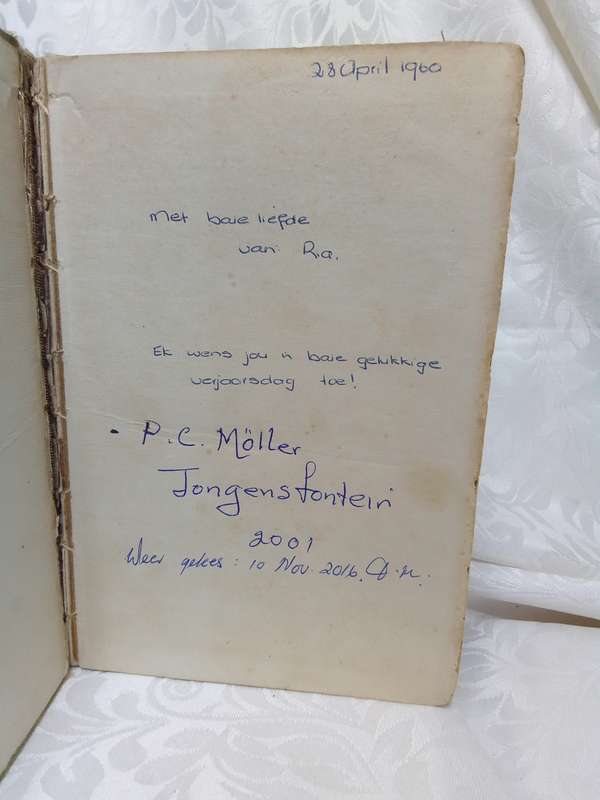 28 April 1960
Met baie liefde
van Ria.
Ek wens jou 'n baie gelukkige
verjaarsdag toe!
P. C. Möller
Jongensfontein
2001
Weer gelees : 10 Nov. 2016.